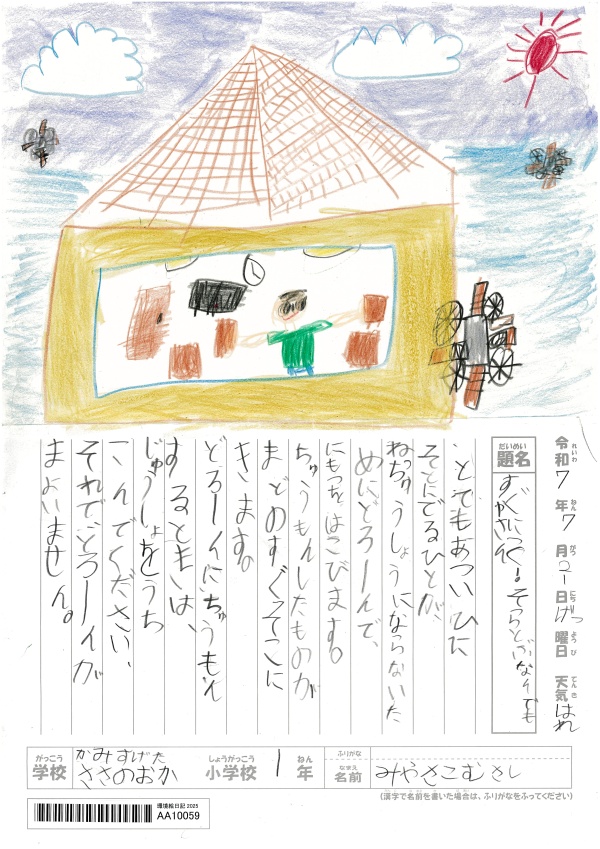 令和7年7月21日げつ曜日 天気はれ
れいわ ねん がつ にち ようび てんき
だいめい
題名
すぐにつく!そらとぶなんでも
やさん
とてもあついひに
そとにでるひとが、
ねっちゅうしょうにならないた
めにどろーんで、
にもつをはこびます。
ちゅうもんしたものが
まどのすぐそこに
きます。
どろーんにちゅうもん
するときは、
じゅうしょをうち
こんでください、
それでどろーんが
まよいません。
がっこう
学校
かみすげた
ささのおか
しょうがっこう
小学校
1
ねん
年
ふりがな
なまえ
名前
みやさこむさし
(漢字で名前を書いた場合は、ふりがなをふってください)
環境絵日記2025
AA10059